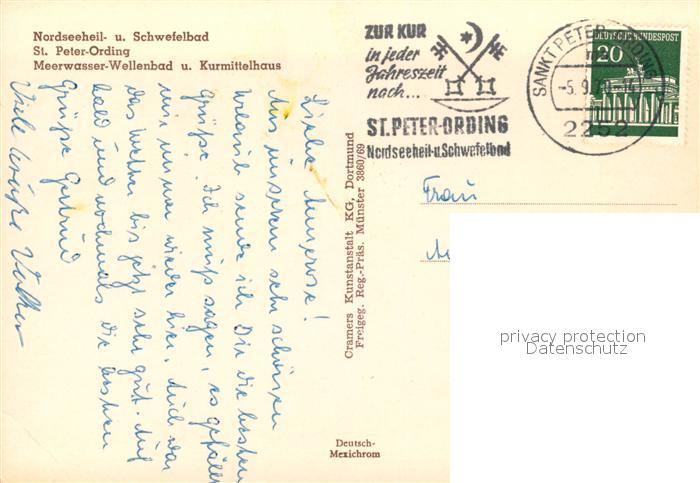 Nordseeheil- u. Schwefelbad
St. Peter-Ording
Meerwasser-Wellenbad u. Kurmittelhaus
ZUR KUR
in jeder
Jahreszeit
nach...
ST.PETER-ORDING
Nordseeheil-u.Schwefelbad
SANKT PETER-ORDING
-5.9.70
2252
DEUTSCHE BUNDESPOST
20
Liebe Annerose!
Aus unserem sehr schönen
Urlaub sende ich Dir die besten
Grüße. Ich muß sagen, es gefällt
mir immer wieder hier. Auch war
das Wetter bis jetzt sehr gut. Auf
bald und nochmals die besten
Grüße Gertrud
Viele Grüße Walter
Cramers Kunstanstalt KG, Dortmund
Freigeg. Reg.-Präs. Münster 3860/69
Frau
Deutsch-
Mexichrom
privacy protection
Datenschutz